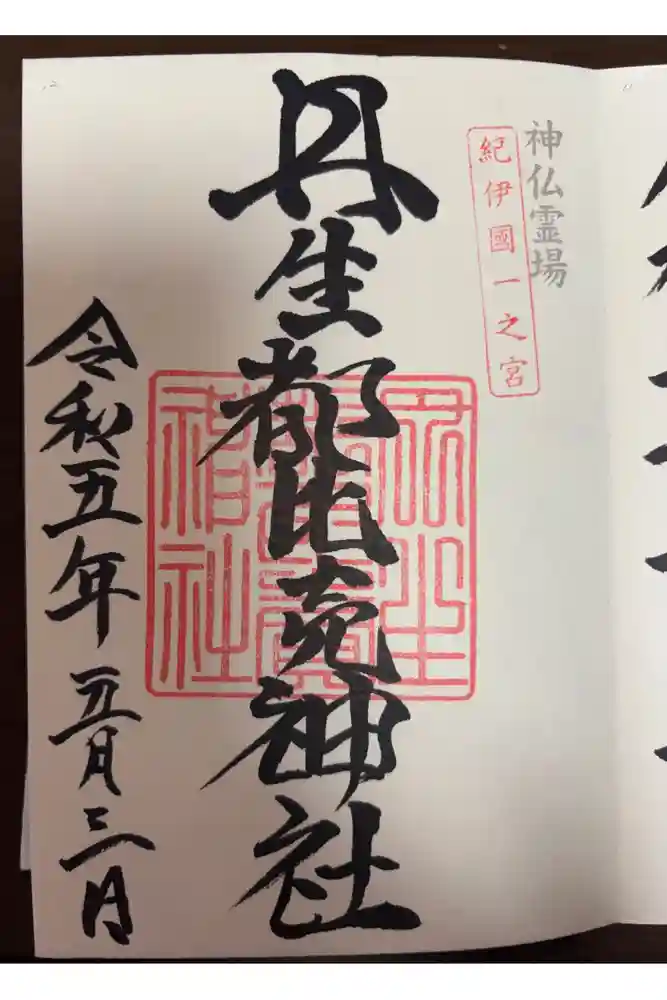 神仏霊場
紀伊國一之宮
丹生都比売神社
令和五年五月三日